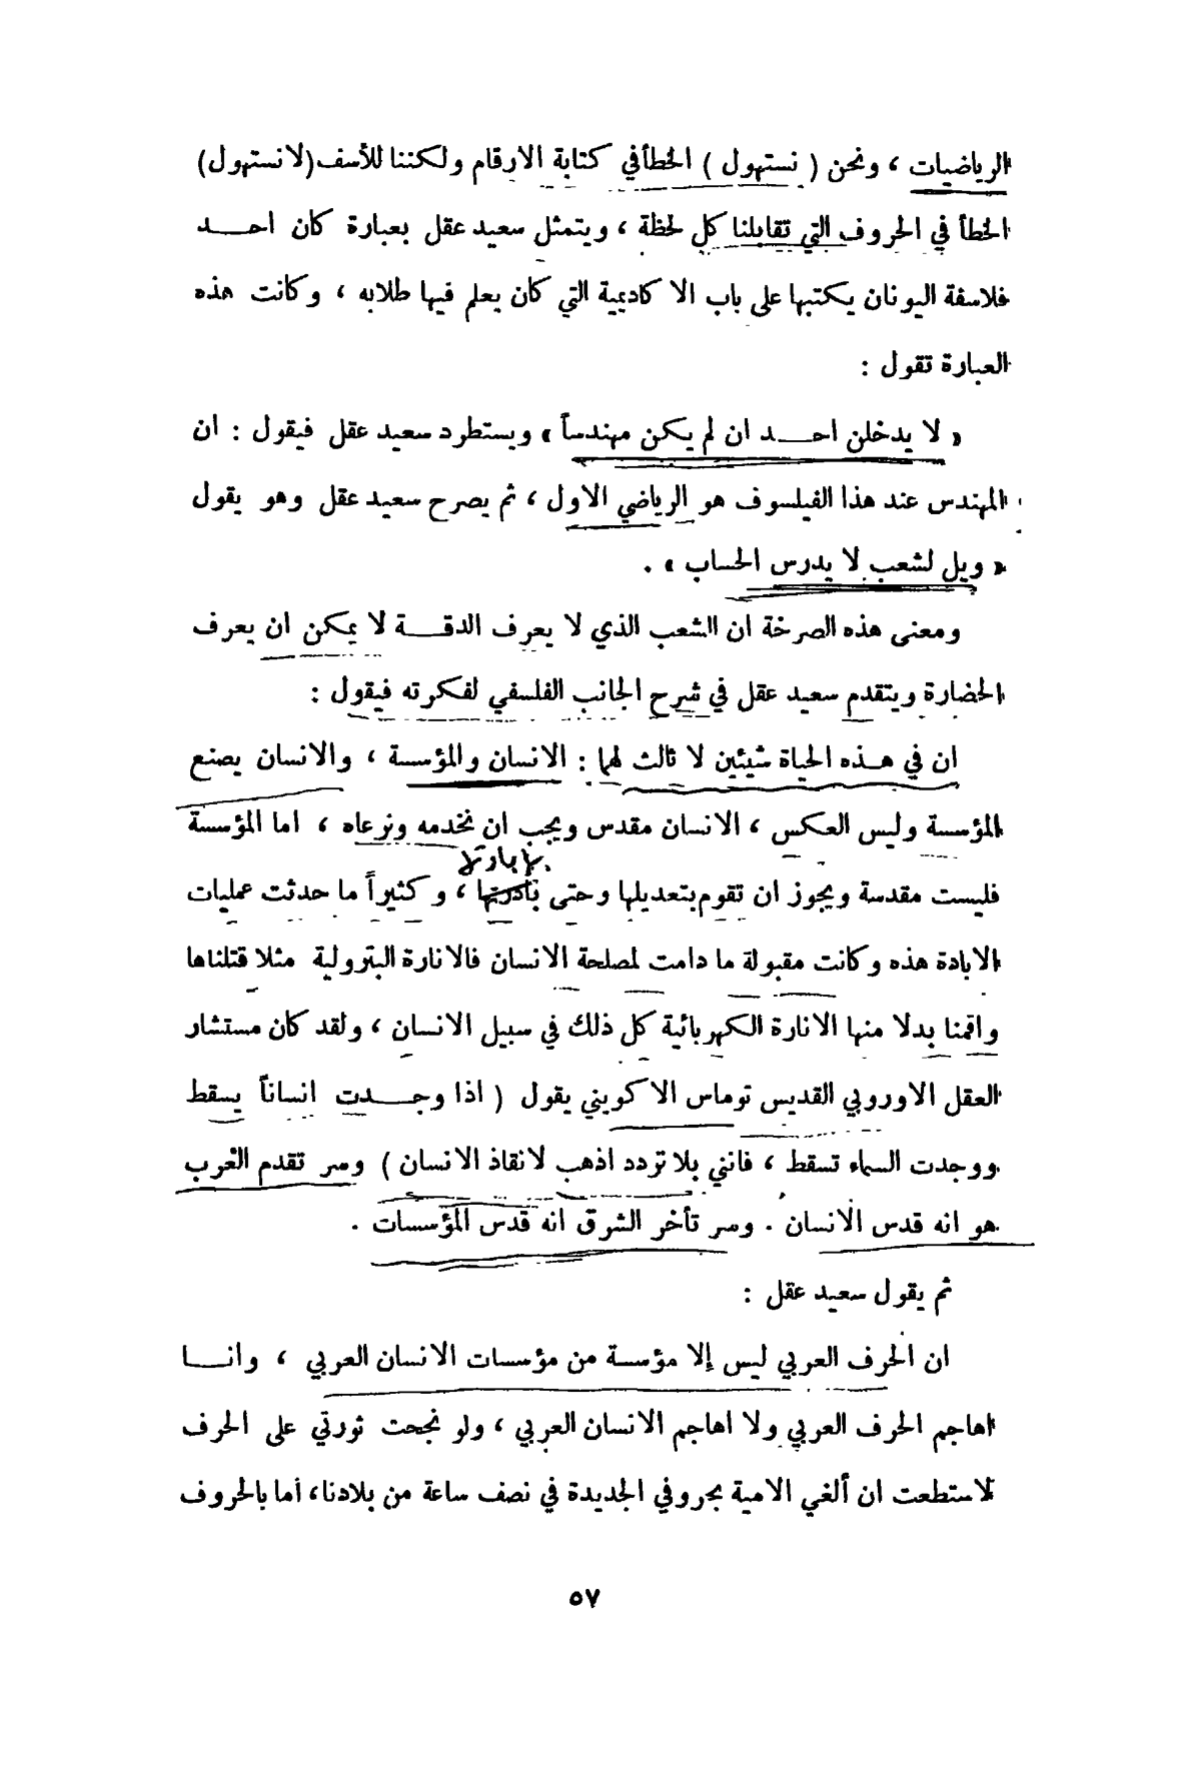 الرياضيات ، ونحن ( نستهول ) الخطأ في كتابة الارقام ولكننا للأسف (لا نستهول)
الخطأ في الحروف التي تقابلنا كل لحظة ، ويتمثل سعيد عقل بعبارة كان احـــد
فلاسفة اليونان يكتبها على باب الاكاديمية التي كان يعلم فيها طلابه ، وكانت هذه
العبارة تقول :
« لا يدخلن احـــد ان لم يكن مهندساً » ويستطرد سعيد عقل فيقول : ان
المهندس عند هذا الفيلسوف هو الرياضي الاول ، ثم يصرح سعيد عقل وهو يقول
« ويل لشعب لا يدرس الحساب » .
ومعنى هذه الصرخة ان الشعب الذي لا يعرف الدقـــة لا يمكن ان يعرف
الحضارة ويتقدم سعيد عقل في شرح الجانب الفلسفي لفكرته فيقول :
ان في هـــذه الحياة شيئين لا ثالث لهما : الانسان والمؤسسة ، والانسان يصنع
المؤسسة وليس العكس ، الانسان مقدس ويجب ان نخدمه ونرعاه ، اما المؤسسة
فليست مقدسة ويجوز ان تقوم بتعديلها وحتى ، وكثيراً ما حدثت عمليات
الابادة هذه وكانت مقبولة ما دامت لمصلحة الانسان فالانارة البترولية مثلا قتلناها
واقمنا بدلا منها الانارة الكهربائية كل ذلك في سبيل الانسان ، ولقد كان مستشار
العقل الاوروبي القديس توماس الاكويني يقول ( اذا وجـــدت انساناً يسقط
ووجدت السماء تسقط ، فانني بلا تردد اذهب لانقاذ الانسان ) وسر تقدم الغرب
هو انه قدس الانسان . وسر تأخر الشرق انه قدس المؤسسات .
ثم يقول سعيد عقل :
ان الحرف العربي ليس إلا مؤسسة من مؤسسات الانسان العربي ، وانـــا
اهاجم الحرف العربي ولا اهاجم الانسان العربي ، ولو نجحت ثورتي على الحرف
لاستطعت ان ألغي الامية بحروفي الجديدة في نصف ساعة من بلادنا، أما بالحروف
٥٧